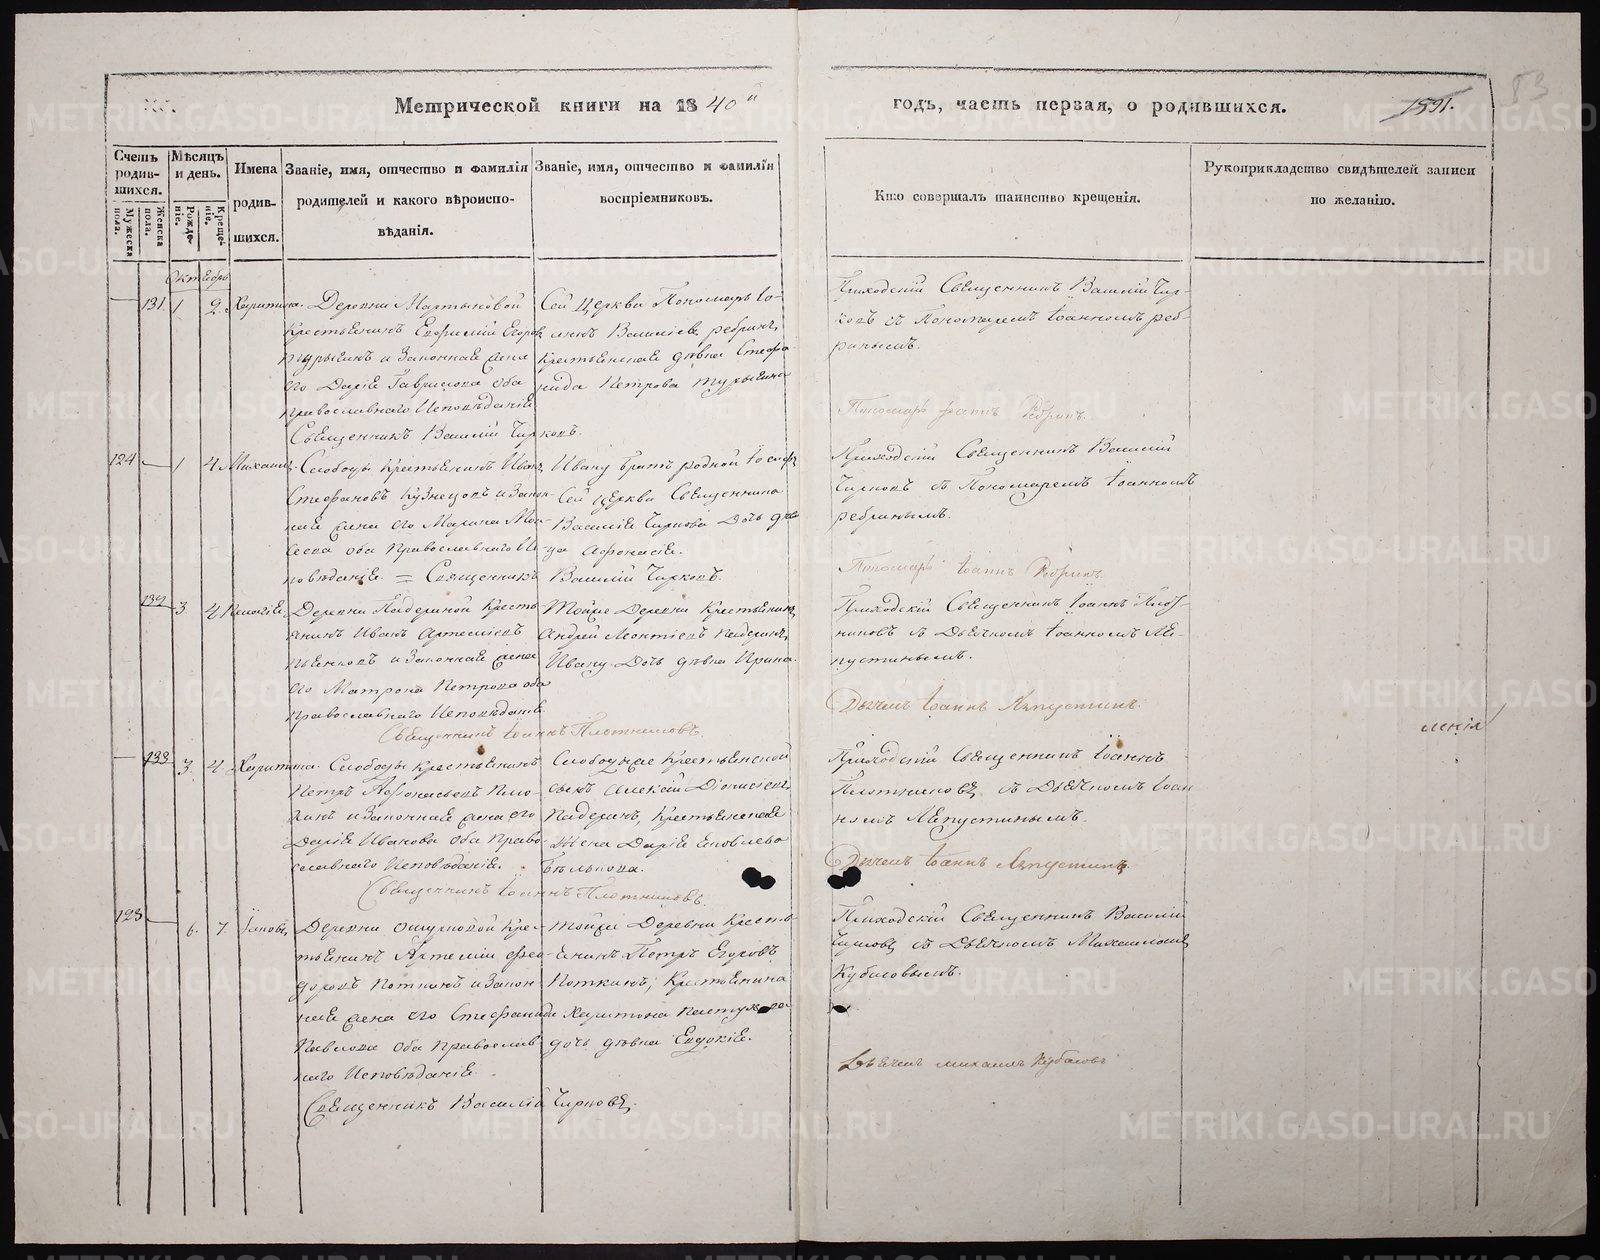 Метрической книги на 1840й
годъ, часть первая, о родившихся.
1591.
53
Счетъ родив-шихся.
Мужеска пола.
Женска пола.
Мѣсяцъ и день.
Рожде-ніе.
Креще-ніе.
Имена
родив-
шихся.
Званіе, имя, отчество и фамилія
родителей и какого вѣроиспо-
вѣданія.
Званіе, имя, отчество и фамилія
воспріемниковъ.
Кто совершалъ таинство крещенія.
Рукоприкладство свидѣтелей записи
по желанію.
Октябрь
131. 1 2. Харитина.
Деревни Мартыновой
Крестьянинъ Егоров
и Законная жена
его Дарія Гаврилова оба
православнаго Исповѣданія
Священникъ Василій Чирковъ.
Сей Церкви Пономарь Іо-
аннъ Василіевъ ребринъ,
Крестьянская дѣвка Стефа
нида Петрова
Приходскій Священникъ Василій Чир-
ковъ съ Пономаремъ Іоанномъ реб-
ринымъ.
Пономарь Іоаннъ Ребринъ.
124 1 4 Михаилъ
Слободы Крестьянинъ Иванъ
Стефановъ Кузнецовъ и Закон-
ная жена его Марина Мои-
сеева оба православнаго И-
повѣданія. = Священникъ Василій Чирковъ.
Ивану братъ родной Іосифъ
Сей Церкви Священника
Василія Чиркова дочь дѣви
ца Афонасія.
Приходскій Священникъ Василій
Чирковъ съ Пономаремъ Іоанномъ
ребринымъ.
Пономарь Іоаннъ Ребринъ.
132 3 4 Пелагія
Деревни Падериной Кресть-
янинъ Иванъ Артеміевъ
и Законная жена
его Матрона Петрова оба
православнаго Исповѣданія
Священникъ Іоаннъ Плотниковъ.
Тойже Деревни Крестьянинъ
Андрей Леонтіевъ Падеринъ,
Ивану дочь дѣвка Ирина.
Приходскій Священникъ Іоаннъ Плот-
никовъ съ Дьячкомъ Іоанномъ Ля-
пустинымъ.
Дьячекъ Іоаннъ Ляпустинъ.
ленія
133 3. 4. Харитина.
Слободы Крестьянинъ
Петръ Афонасьевъ
и Законная жена его
Дарія Иванова оба Право-
славнаго Исповѣданія.
Священникъ Іоаннъ Плотниковъ.
Слободская Крестьянской
сынъ Алексій Діонисіевъ
Падеринъ, Крестьянская
жена Дарія Іаковлева
Бѣлькова.
Приходскій Священникъ Іоаннъ
Плотниковъ съ Дьячкомъ Іоан
номъ Ляпустинымъ.
Дьячекъ Іоаннъ Ляпустинъ
125 6. 7. Іаковъ
Деревни Кре-
стьянинъ Артемій Фео-
доровъ Поткинъ и Закон-
ная жена его Стефанида
Павлова оба православ-
наго Исповѣданія.
Священникъ Василій Чирковъ.
Тойже Деревни Кресть-
янинъ Петръ Егоровъ
Поткинъ, Крестьянина
Харитона
дочь дѣвка Евдокія.
Приходскій Священникъ Василій
Чирковъ съ Дьячкомъ Михаиломъ
Кубасовымъ.
Дьячекъ Михаилъ Кубасовъ
METRIKI.GASO-URAL.RU